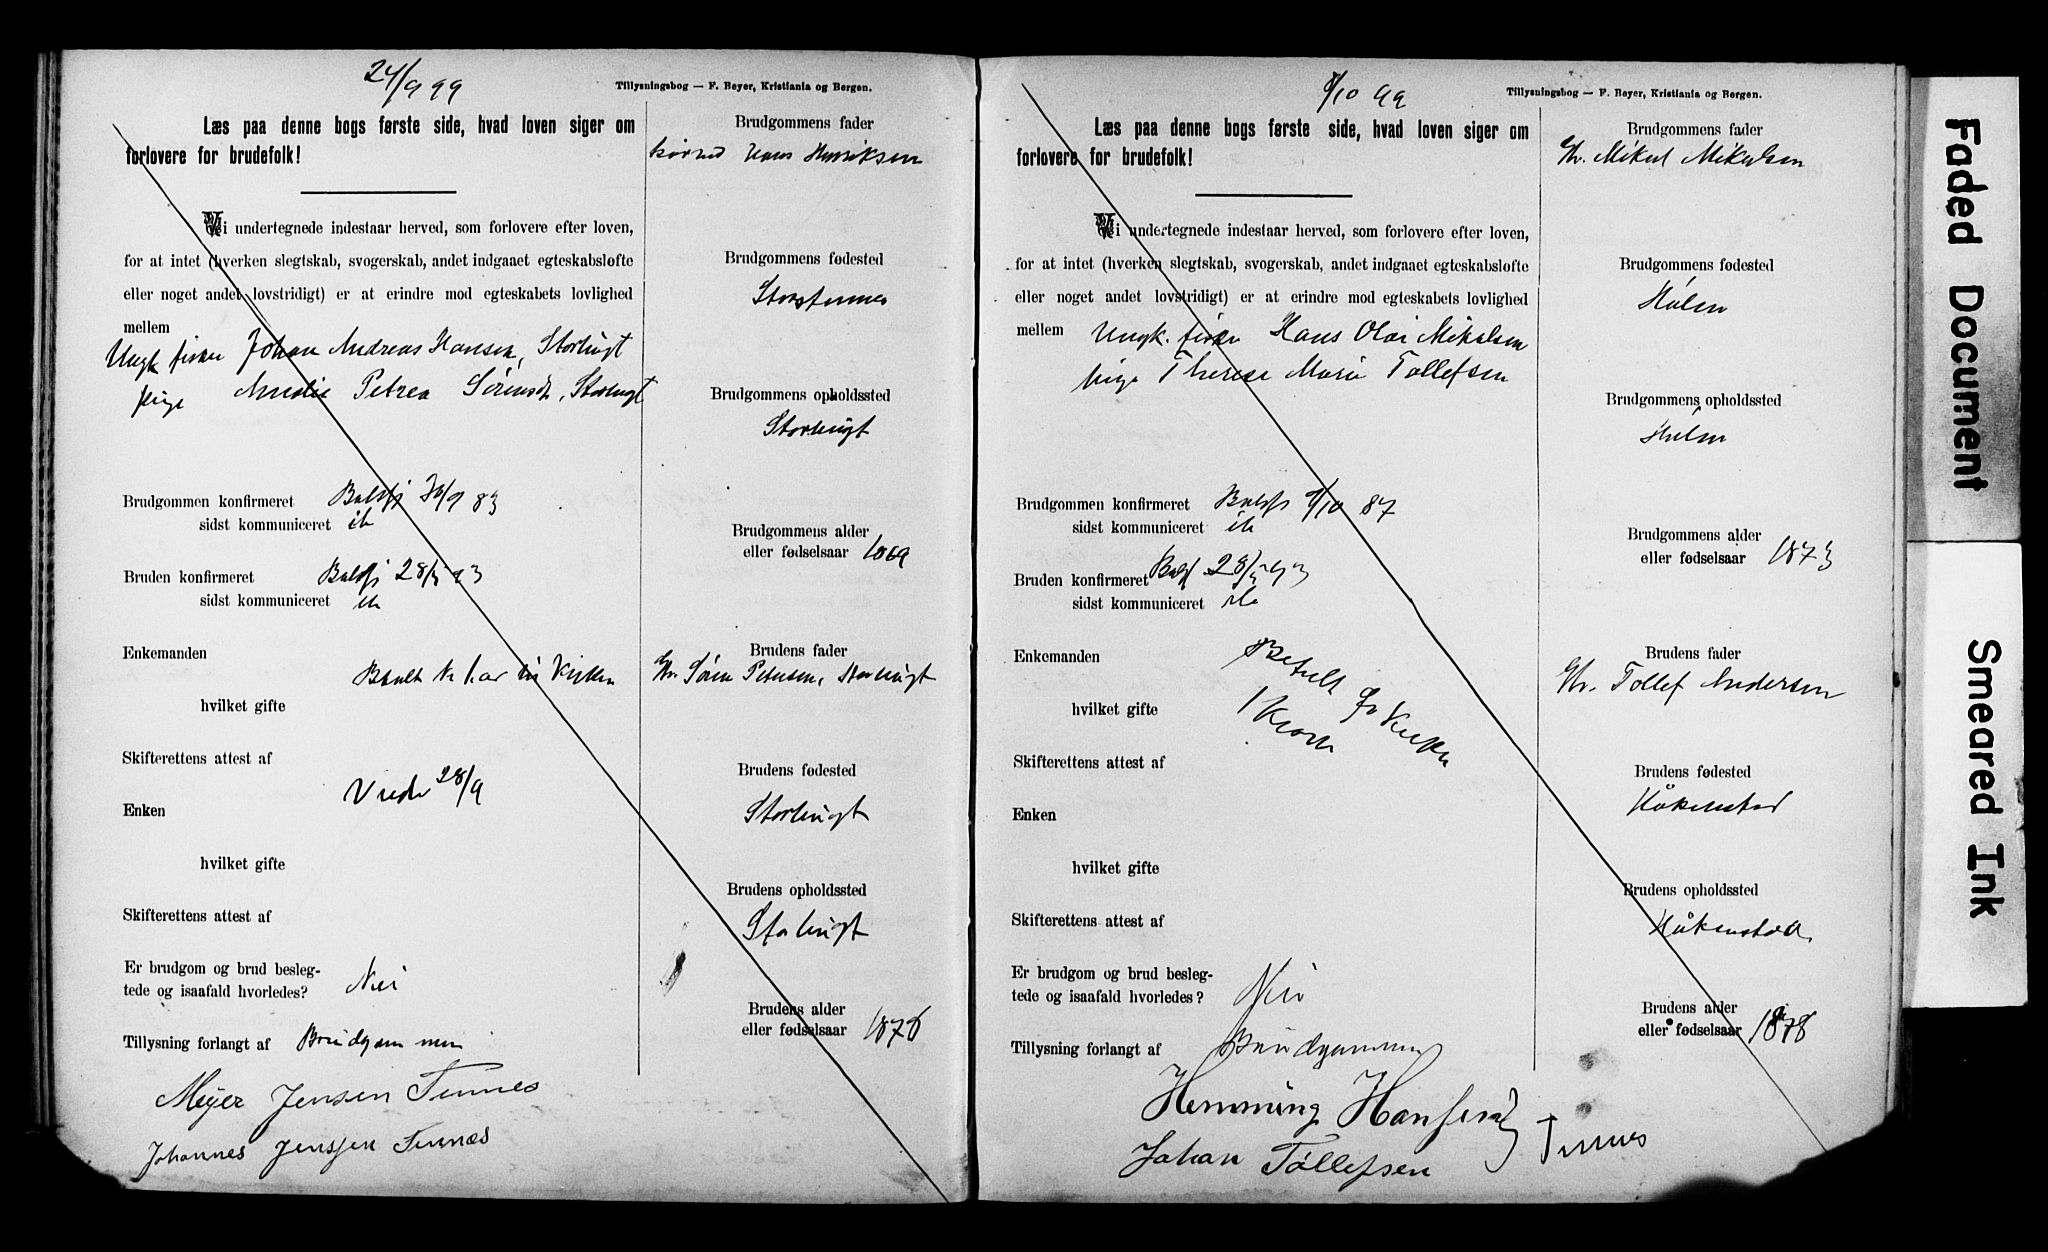 24/9 99
Tillysningsbog — F. Beyer, Kristiania og Bergen.
Læs paa denne bogs første side, hvad loven siger om
forlovere for brudefolk!
Vi undertegnede indestaar herved, som forlovere efter loven,
for at intet (hverken slegtskab, svogerskab, andet indgaaet egteskabsløfte
eller noget andet lovstridigt) er at erindre mod egteskabets lovlighed
mellem
Ungk fisker Johan Andreas Hansen, Storbugt
pige Amalie Petrea Sørensdt, Storbugt
Brudgommen konfirmeret Balsfj 30/9 83
sidst kommuniceret ib
Bruden konfirmeret Balsfj 28/5 93
sidst kommuniceret ib
Enkemanden
hvilket gifte
Skifterettens attest af
Viede 28/9
Enken
hvilket gifte
Skifterettens attest af
Er brudgom og brud besleg-
tede og isaafald hvorledes? Nei
Tillysning forlangt af Brudgommen
Meyer Jensen Tennes
Johannes Jenssen Tennæs
Brudgommens fader
Hans Henriksen
Brudgommens fødested
Storstennes
Brudgommens opholdssted
Storbugt
Brudgommens alder
eller fødselsaar 1869
Brudens fader
Gbr. Søren Petersen, Storbugt
Brudens fødested
Storbugt
Brudens opholdssted
Storbugt
Brudens alder
eller fødselsaar 1878
8/10 99
Tillysningsbog — F. Beyer, Kristiania og Bergen.
Læs paa denne bogs første side, hvad loven siger om
forlovere for brudefolk!
Vi undertegnede indestaar herved, som forlovere efter loven,
for at intet (hverken slegtskab, svogerskab, andet indgaaet egteskabsløfte
eller noget andet lovstridigt) er at erindre mod egteskabets lovlighed
mellem
Ungk. fisker Hans Olai Mikalsen
pige Therese Marie Tollefsen
Brudgommen konfirmeret Balsfj 9/10 87
sidst kommuniceret ib
Bruden konfirmeret Balsf 28/5 93
sidst kommuniceret ib
Enkemanden
Betalt
1 Krone
hvilket gifte
Skifterettens attest af
Enken
hvilket gifte
Skifterettens attest af
Er brudgom og brud besleg-
tede og isaafald hvorledes? Nei
Tillysning forlangt af Brudgommen
Hemming Hansen
Johan Tøllefsen
Tennes
Brudgommens fader
Gbr. Mikal Mikalsen
Brudgommens fødested
Holen
Brudgommens opholdssted
Holen
Brudgommens alder
eller fødselsaar 1873
Brudens fader
Gbr. Tollef Andersen
Brudens fødested
Håkenstad
Brudens opholdssted
Håkenstad
Brudens alder
eller fødselsaar 1878
Faded Document
Smeared Ink